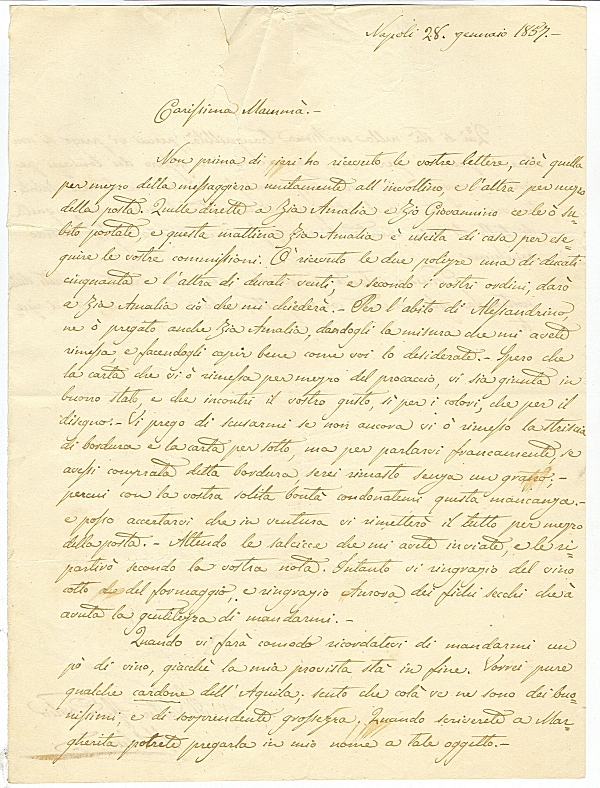 Napoli 28. gennaio 1857.-
Carissima Mammà.-
Non prima di jeri ho ricevuto le vostre lettere, cioè quella
per mezzo della messaggiera unitamente all'involtino, e l'altra per mezzo
della posta. Quelle dirette a Zia Amalia e Zio Giovannino ce le ò su-
bito portate, e questa mattina Zia Amalia è uscita di casa per ese-
guire le vostre commissioni. Ò ricevuto le due polizze una di ducati
cinquanta e l'altra di ducati venti, e secondo i vostri ordini, darò
a Zia Amalia ciò che mi chiederà.- Per l'abito di Alessandrino,
ne ò pregato anche Zia Amalia, dandogli la misura che mi avete
rimessa, e facendogli capir bene come voi lo desiderate.- Spero che
la carta che vi ò rimessa per mezzo del procaccio, vi sia giunta in
buono stato, e che incontri il vostro gusto, sì per i colori, che per il
disegno.- Vi prego di scusarmi se non ancora vi ò rimesso la striscia
di bordura e la carta per sotto, ma per parlarvi francamente se
avessi comprata detta bordura serei rimasto senza un grano;-
perciò con la vostra solita bontà condonatemi questa mancanza.-
e posso accertarvi che in ventura vi rimetterò il tutto per mezzo
della posta.- Attendo le salcicce che mi avete inviate, e le ri-
partirò secondo la vostra nota. Intanto vi ringrazio del vino
cotto del formaggio, e ringrazio Aurora dei fichi secchi che à
avuta la gentilezza di mandarmi.-
Quando vi farà comodo ricordatevi di mandarmi un
pò di vino, giacchè la mia provista stà in fine. Vorrei pure
qualche cardone dell'Aquila; sento che colà ve ne sono dei buo-
nissimi, e di sorprendente grossezza. Quando scriverete a Mar-
gherita potrete pregarla in mio nome a tale oggetto.-